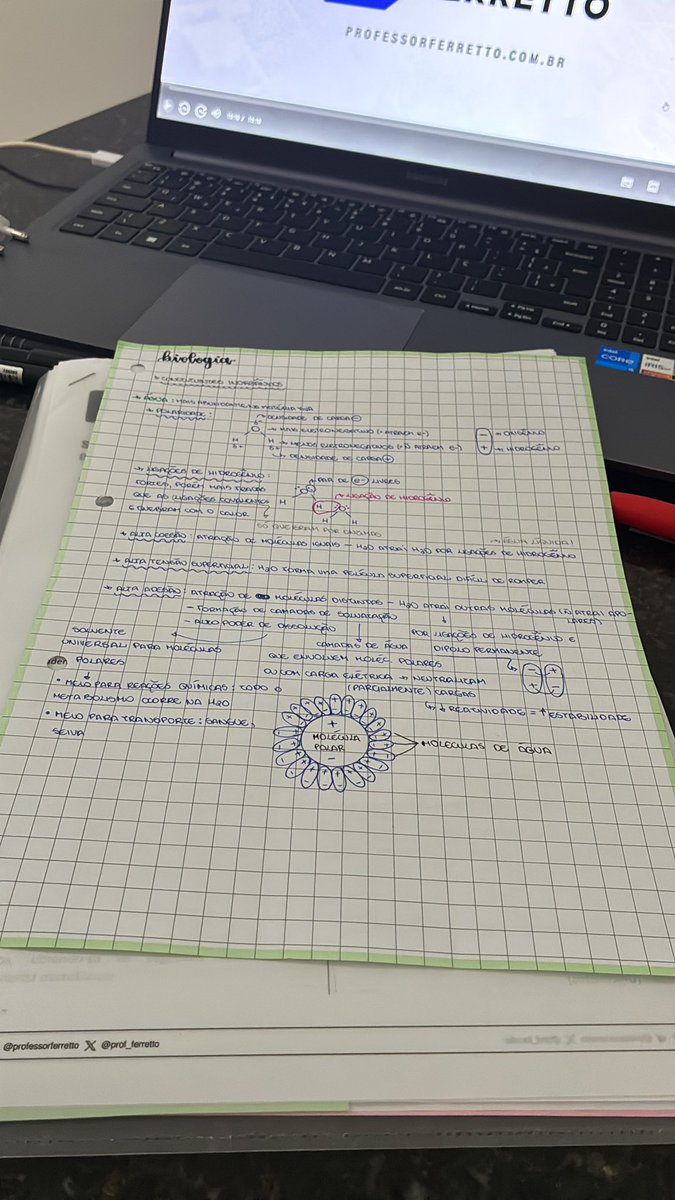 FERRETTO
PROFESSORFERRETTO.COM.BR
intel CORE i5
intel IRIS
biologia
ÁGUA: MAIS ABUNDANTE NA MATÉRIA VIVA
POLARIDADE:
DENSIDADE DE CARGA ⊖
δ-
O → MAIS ELETRONEGATIVO (+ ATRAEM e-)
H H → MENOS ELETRONEGATIVOS (↓ ATRAEM e-)
δ+ δ+
↳ DENSIDADE DE CARGA ⊕
− → OXIGÊNIO
+ → HIDROGÊNIO
LIGAÇÕES DE HIDROGÊNIO:
FORTES, PORÉM MAIS FRACAS
QUE AS LIGAÇÕES COVALENTES
QUEBRAM COM O CALOR
PAR DE e- LIVRES
LIGAÇÃO DE HIDROGÊNIO
H H O
H H
SÓ QUEBRAM POR ENZIMAS
ÁGUA LÍQUIDA!
ALTA COESÃO: ATRAÇÃO DE MOLÉCULAS IGUAIS — H2O ATRAI H2O POR LIGAÇÕES DE HIDROGÊNIO
ALTA TENSÃO SUPERFICIAL: H2O FORMA UMA PELÍCULA SUPERFICIAL DIFÍCIL DE ROMPER
ALTA ADESÃO: ATRAÇÃO DE MOLÉCULAS DISTINTAS — H2O ATRAI OUTRAS MOLÉCULAS (Ñ ATRAI APO
LARES)
− FORMAÇÃO DE CAMADAS DE SOLVATAÇÃO
− ALTO PODER DE DISSOLUÇÃO
POR LIGAÇÕES DE HIDROGÊNIO E
DIPOLO PERMANENTE
SOLVENTE
UNIVERSAL PARA MOLÉCULAS
POLARES
CAMADAS DE ÁGUA
QUE ENVOLVEM MOLÉC. POLARES
OU COM CARGA ELÉTRICA → NEUTRALIZAM
(PARCIALMENTE) CARGAS
↳ ↓ REATIVIDADE = ↑ ESTABILIDADE
• MEIO PARA REAÇÕES QUÍMICAS: TODO O
METABOLISMO OCORRE NA H2O
• MEIO PARA TRANSPORTE: SANGUE,
SEIVA
+
MOLÉCULA
POLAR
−
MOLÉCULAS DE ÁGUA
@professorferretto X @prof_ferretto